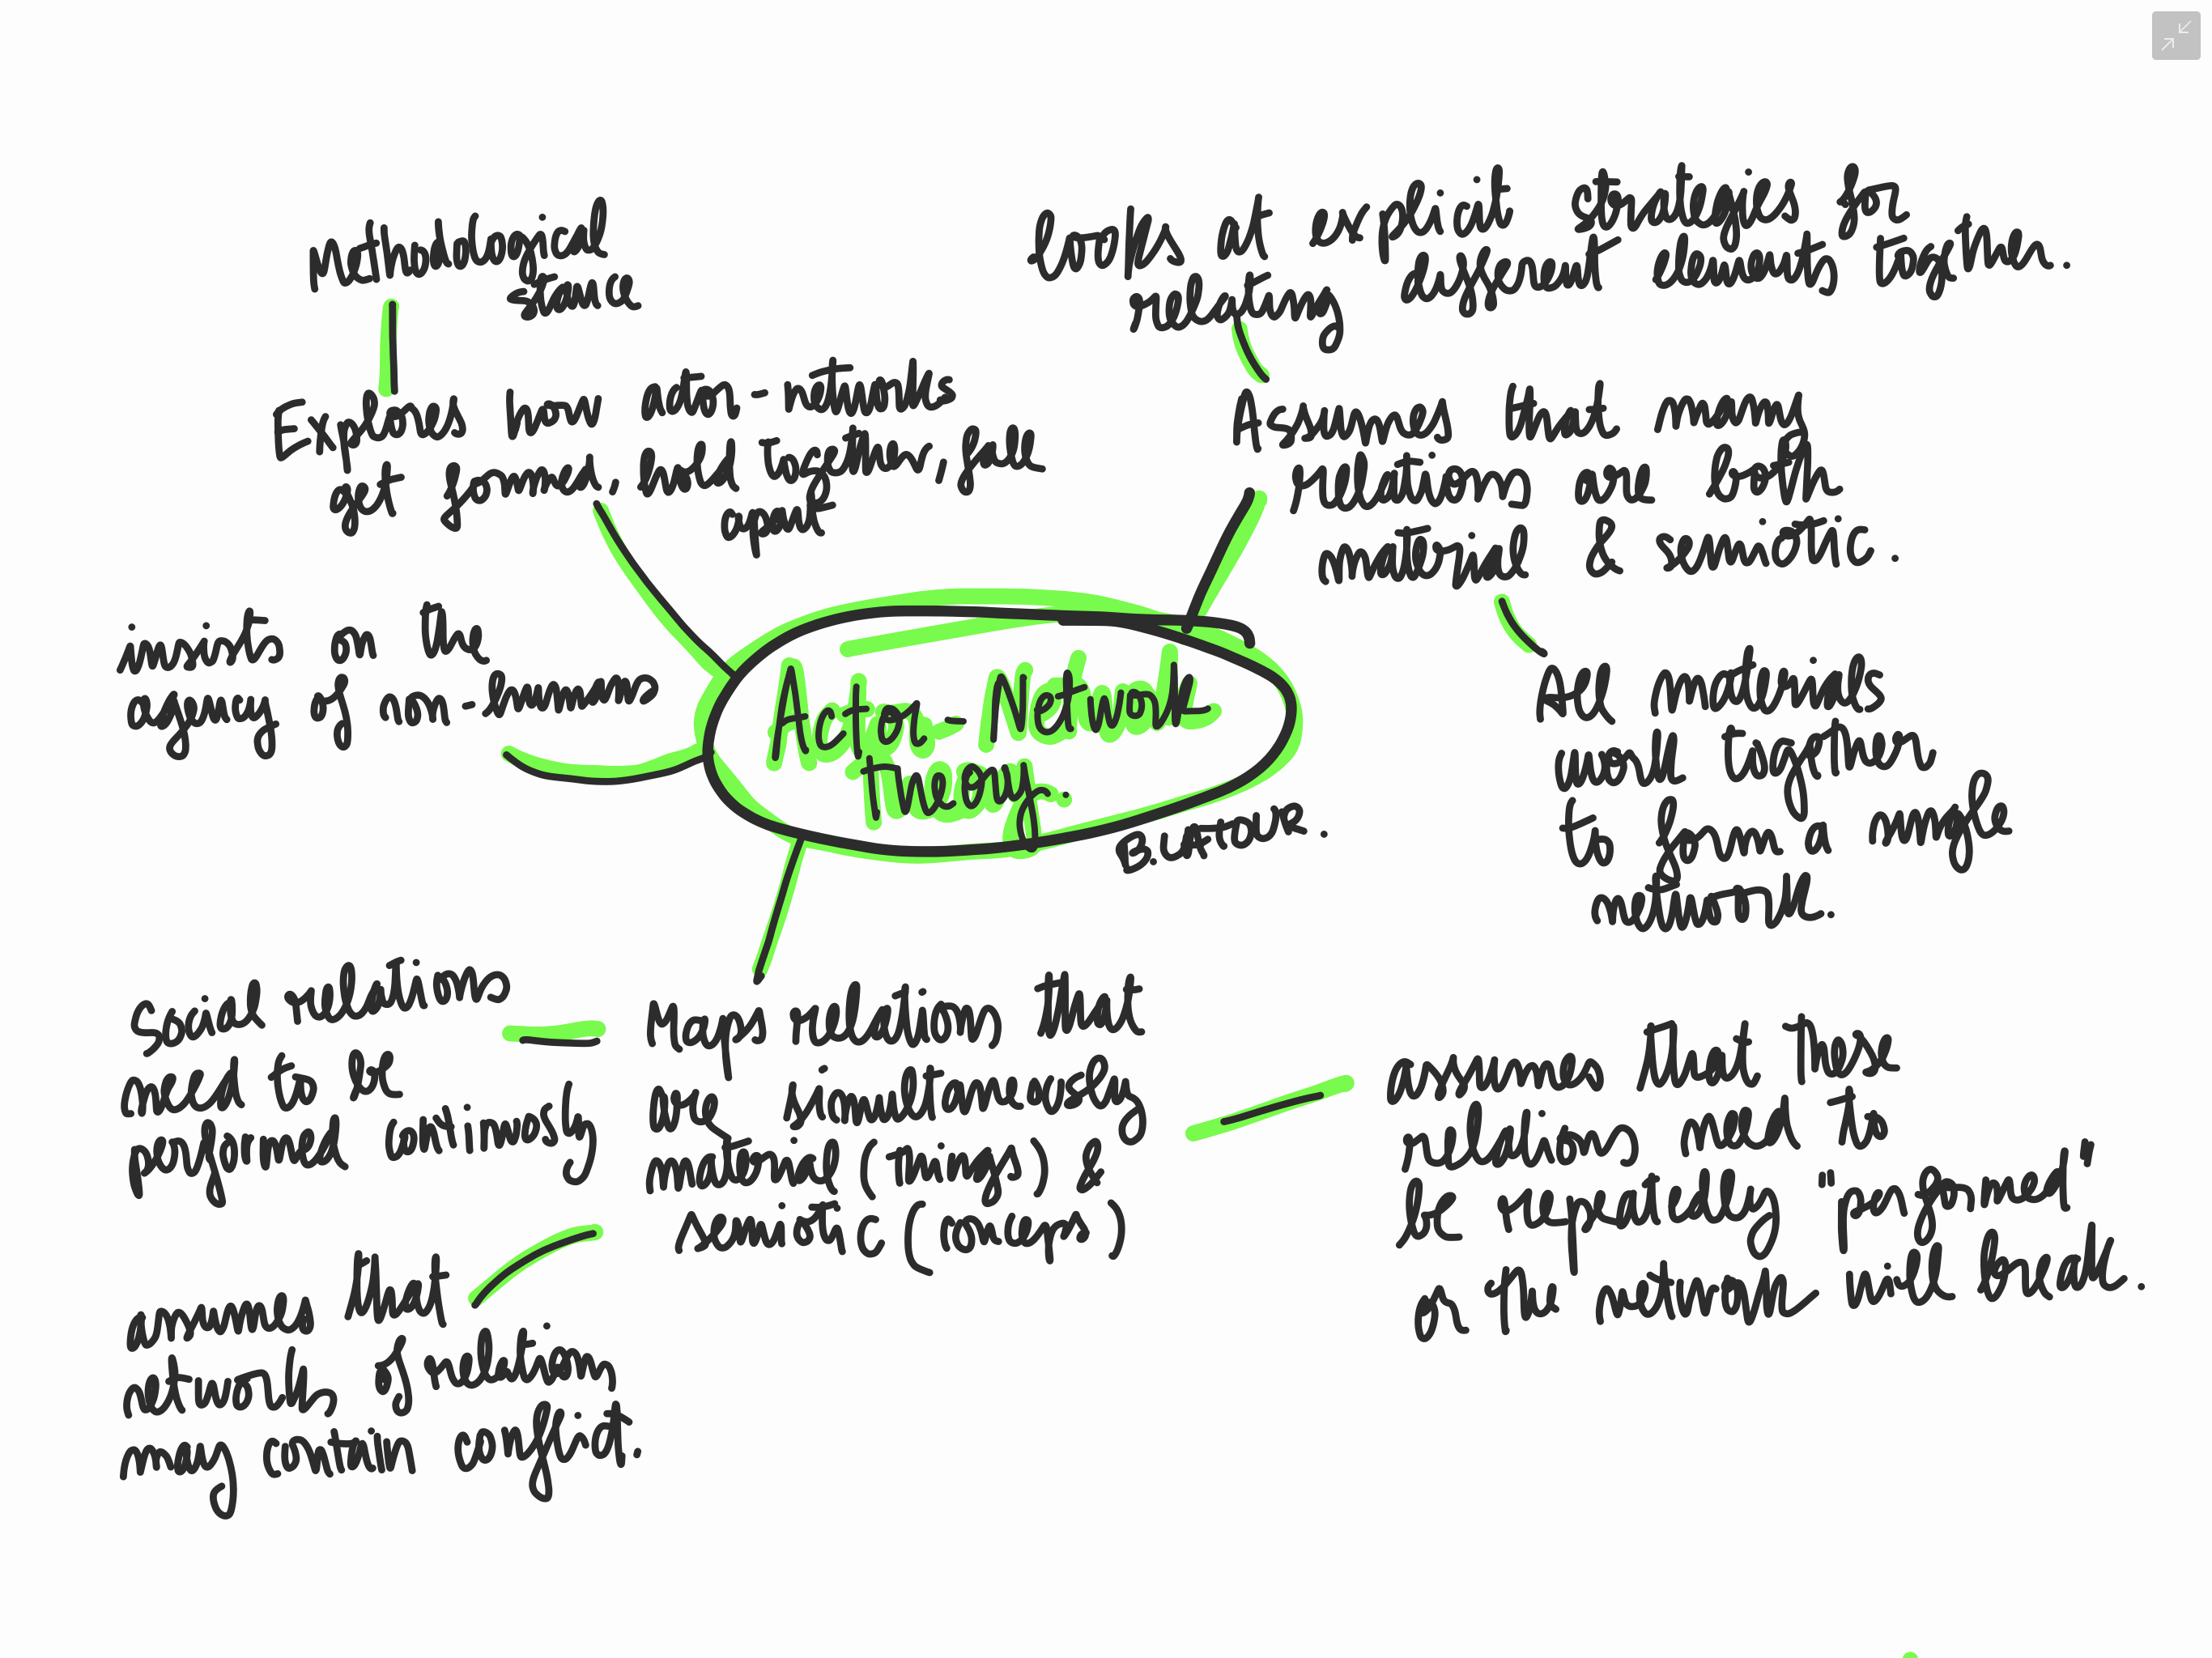 Methodological
stance
Explores how actor-networks
get formed, hold together, fall
apart
insists on the
agency of non-humans
Looks at explicit strategies for
relating different elements together.
Assumes that many
relations are both
material & semiotic.
All materials
work together
to form a single
network.
Actor-Network
Theory.
B. Latour.
Social relations
need to be
performed continously
assumes that
networks of relations
may contain conflict.
Maps relations that
are simultaneously
material (things) &
semiotic (concepts)
assumes that these
relations need to
be repeatedly "performed"
or the network will break.